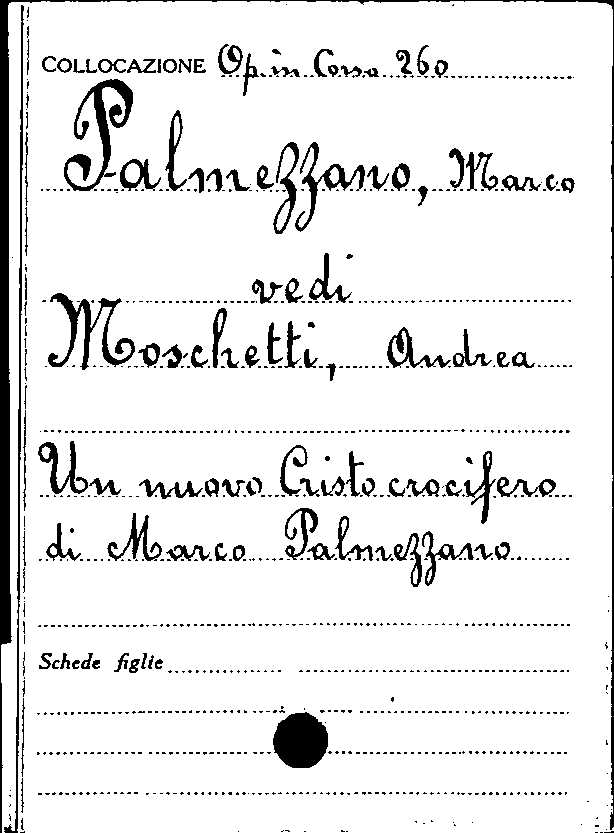 COLLOCAZIONE Op. in Corso 260
Palmezzano, Marco
vedi
Moschetti, Andrea
Un nuovo Cristo crocifero
di Marco Palmezzano.
Schede figlie